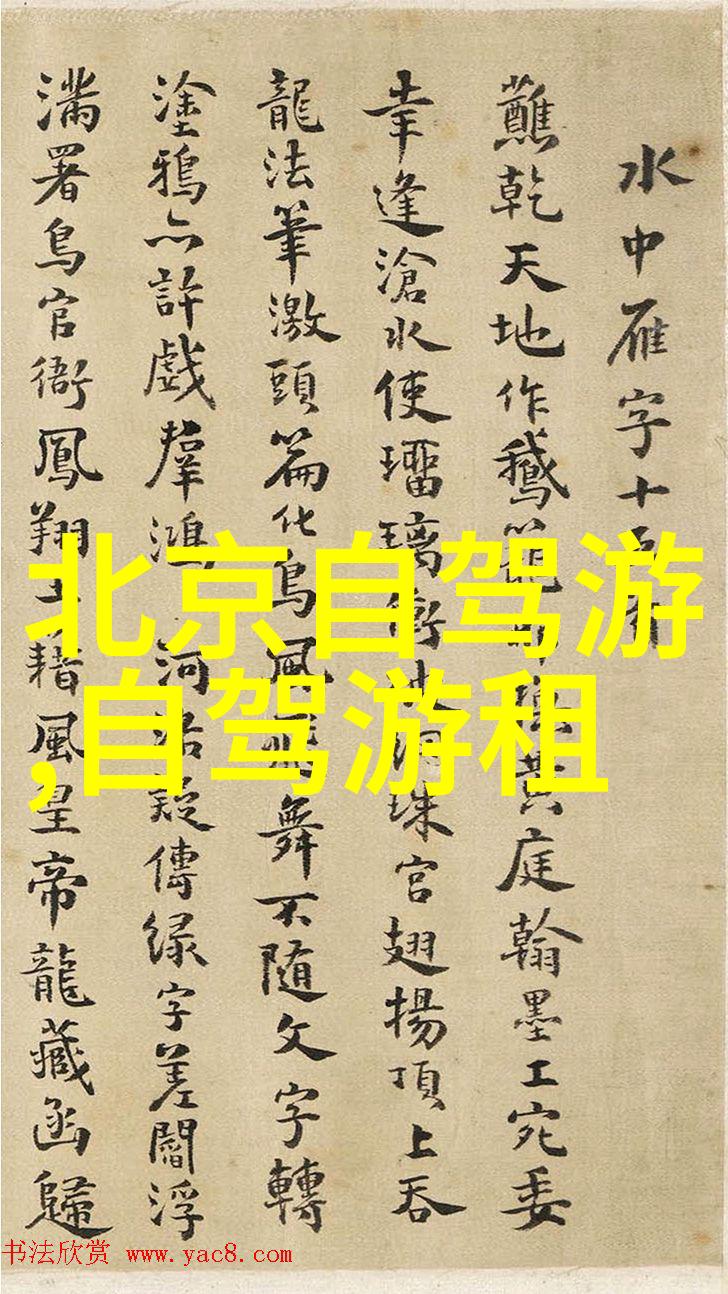 水中雁字十
蘸乾天地作鵝籠黄庭翰墨工宛委
幸逢滄水使璢璃衝珠宮翅揚頂上吞
龍法筆激頭篇化鳥風飛舞不随文字轉
塗鴉亦許戯羣鴻河疑傳緑字差閻浮
滿署鳥官衙鳳翔藉風皇帝龍藏函歸
北京自驾游
,自驾游租
书法欣赏 www.yac8.com